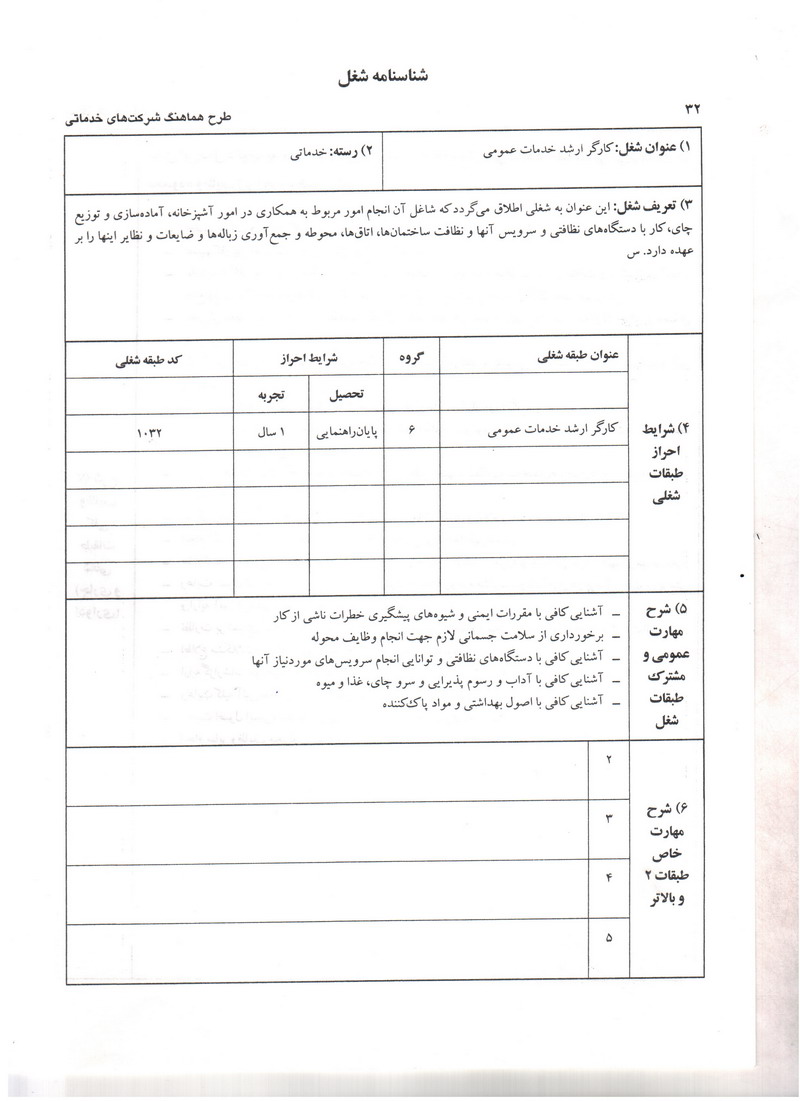 شناسنامه شغل
۳۲
طرح هماهنگ شرکت‌های خدماتی
۱) عنوان شغل: کارگر ارشد خدمات عمومی
۲) رسته: خدماتی
۳) تعریف شغل: این عنوان به شغلی اطلاق می‌گردد که شاغل آن انجام امور مربوط به همکاری در امور آشپزخانه، آماده‌سازی و توزیع
چای، کار با دستگاه‌های نظافتی و سرویس آنها و نظافت ساختمان‌ها، اتاق‌ها، محوطه و جمع‌آوری زباله‌ها و ضایعات و نظایر اینها را بر
عهده دارد. س
۴) شرایط
احراز
طبقات
شغلی
عنوان طبقه شغلی
گروه
شرایط احراز
کد طبقه شغلی
تحصیل
تجربه
کارگر ارشد خدمات عمومی
۶
پایان‌راهنمایی
۱ سال
۱۰۳۲
۵) شرح
مهارت
عمومی و
مشترک
طبقات
شغل
– آشنایی کافی با مقررات ایمنی و شیوه‌های پیشگیری خطرات ناشی از کار
– برخورداری از سلامت جسمانی لازم جهت انجام وظایف محوله
– آشنایی کافی با دستگاه‌های نظافتی و توانایی انجام سرویس‌های موردنیاز آنها
– آشنایی کافی با آداب و رسوم پذیرایی و سرو چای، غذا و میوه
– آشنایی کافی با اصول بهداشتی و مواد پاک‌کننده
۶) شرح
مهارت
خاص
طبقات ۲
و بالاتر
۲
۳
۴
۵